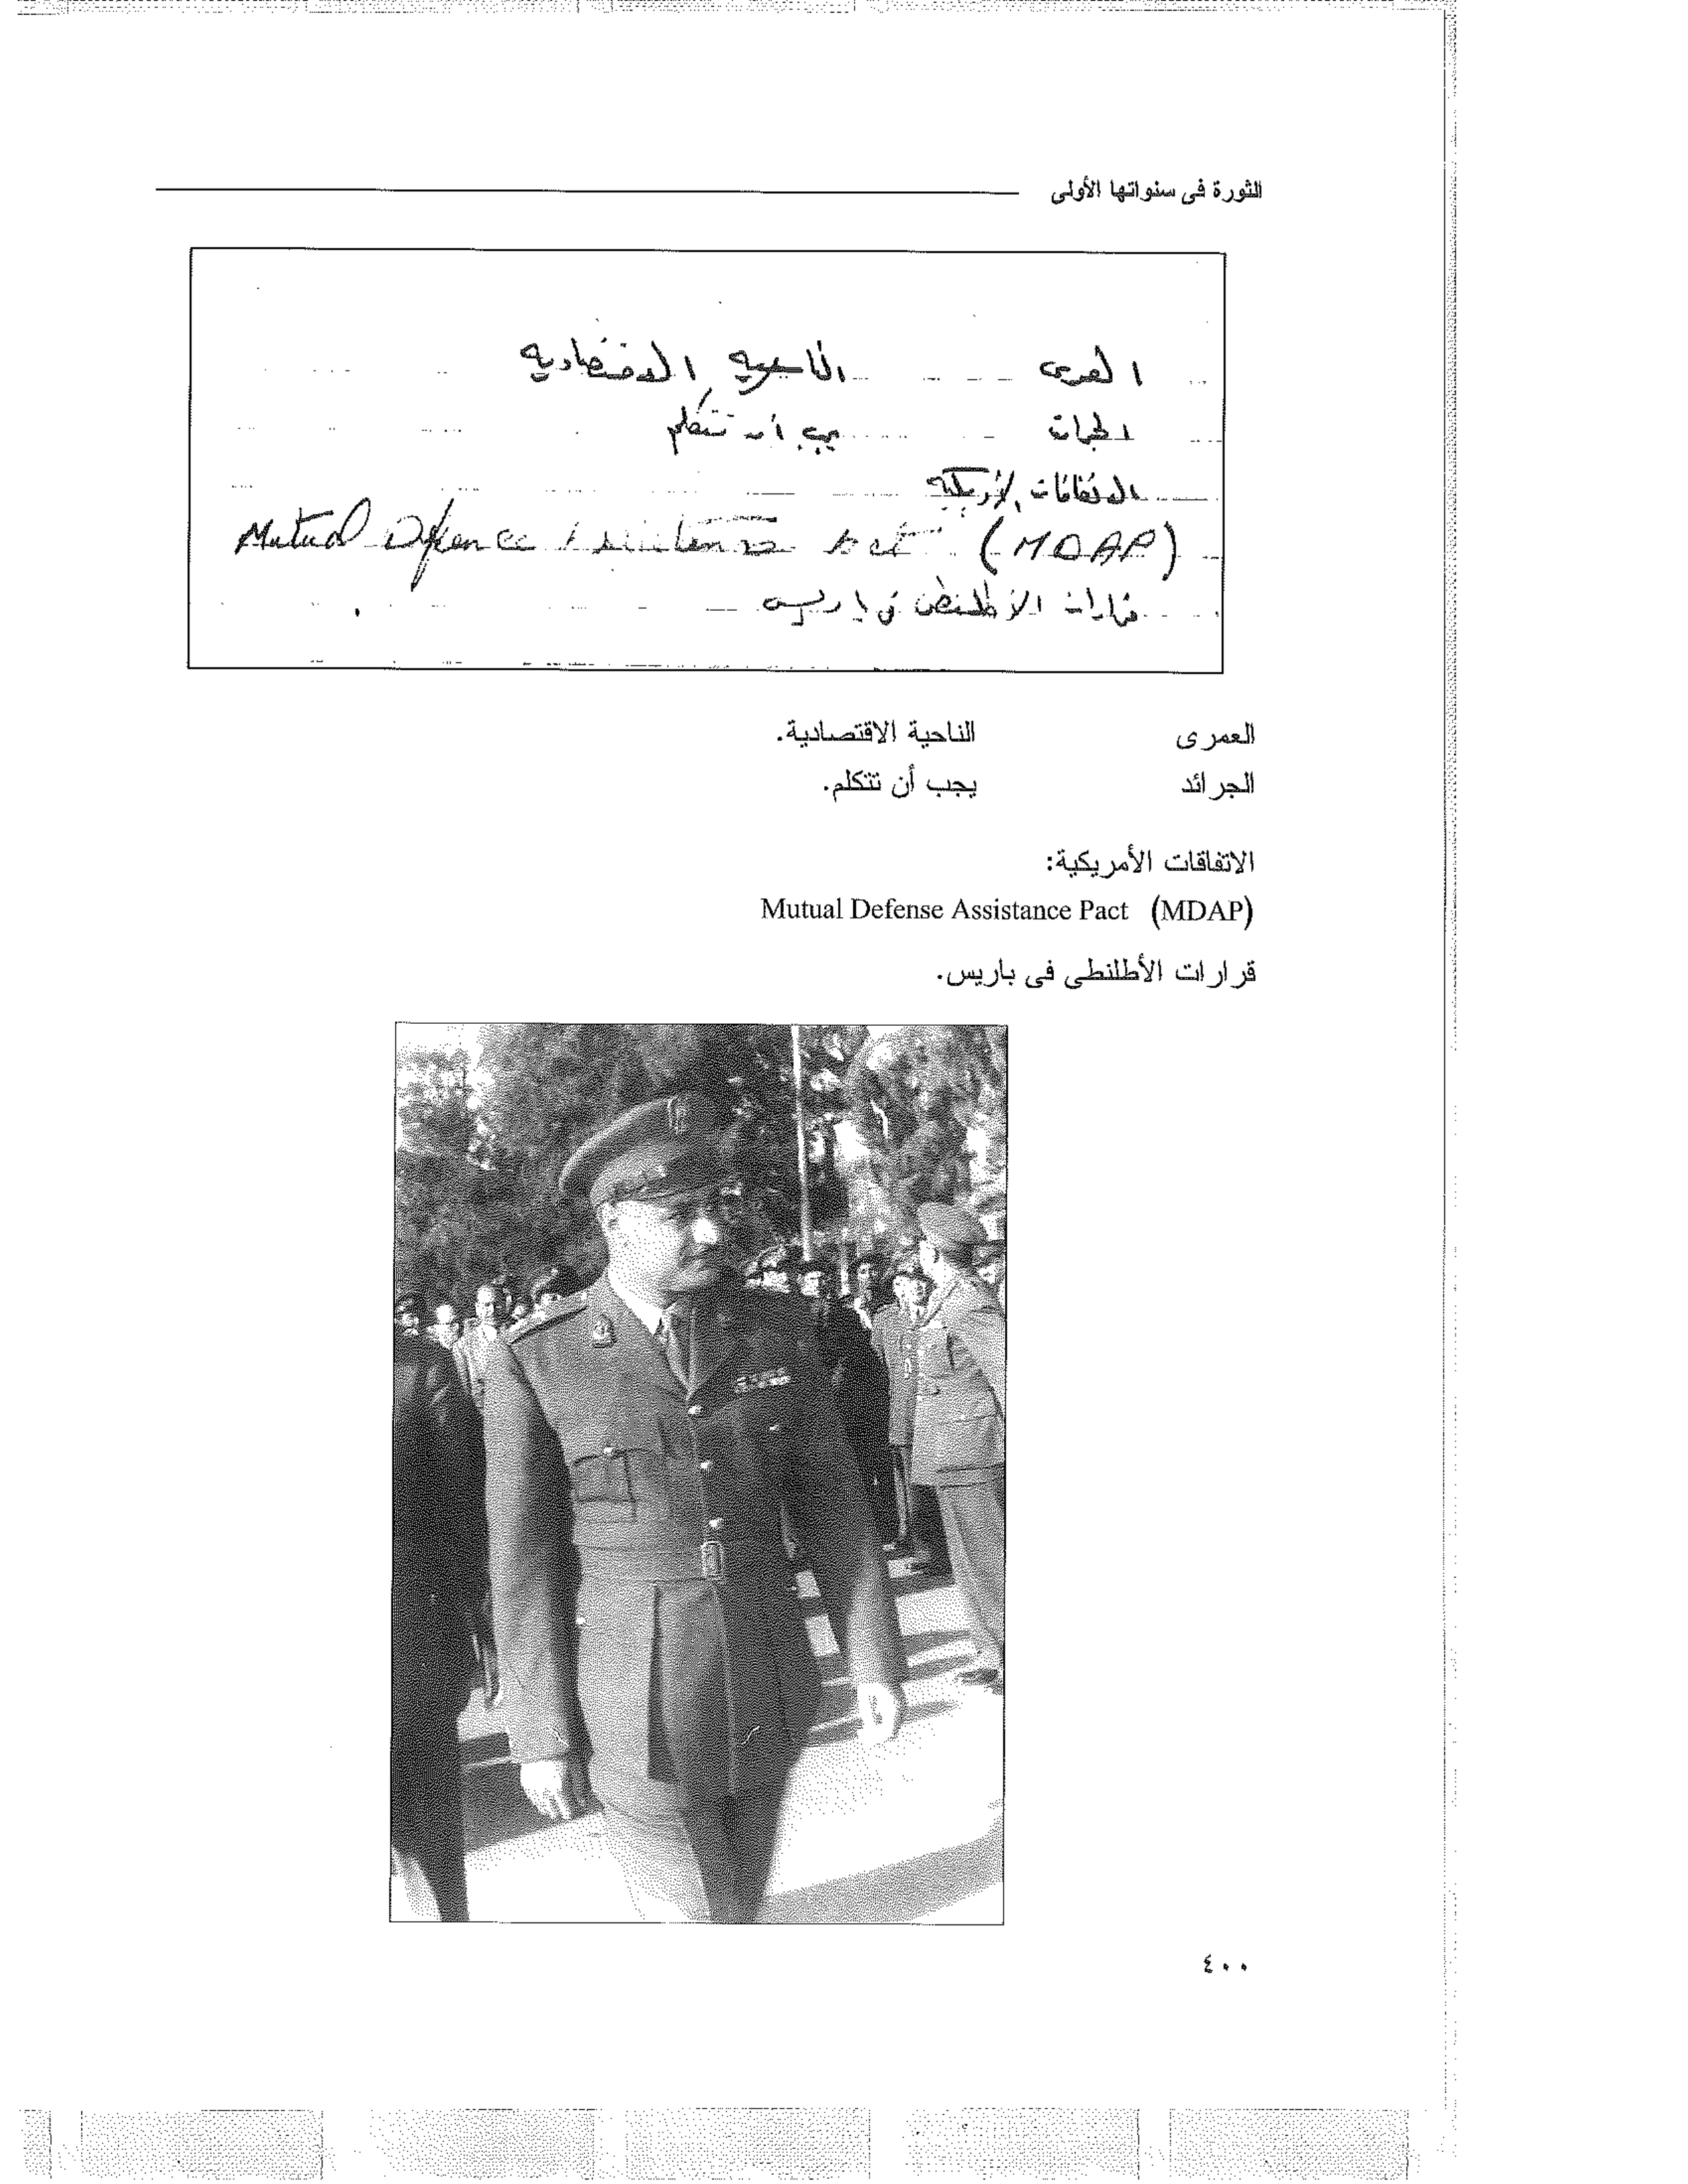 الثورة فى سنواتها الأولى
العمرى الناحيه الاقتصاديه
الجرائد يجب أن تتكلم
الاتفاقات الأمريكية
Mutual Defence Assistance Act (MDAP)
قرارات الأطلنطى فى باريس
العمرى الناحية الاقتصادية.
الجرائد يجب أن تتكلم.
الاتفاقات الأمريكية:
Mutual Defense Assistance Pact (MDAP)
قرارات الأطلنطى فى باريس.
٤٠٠